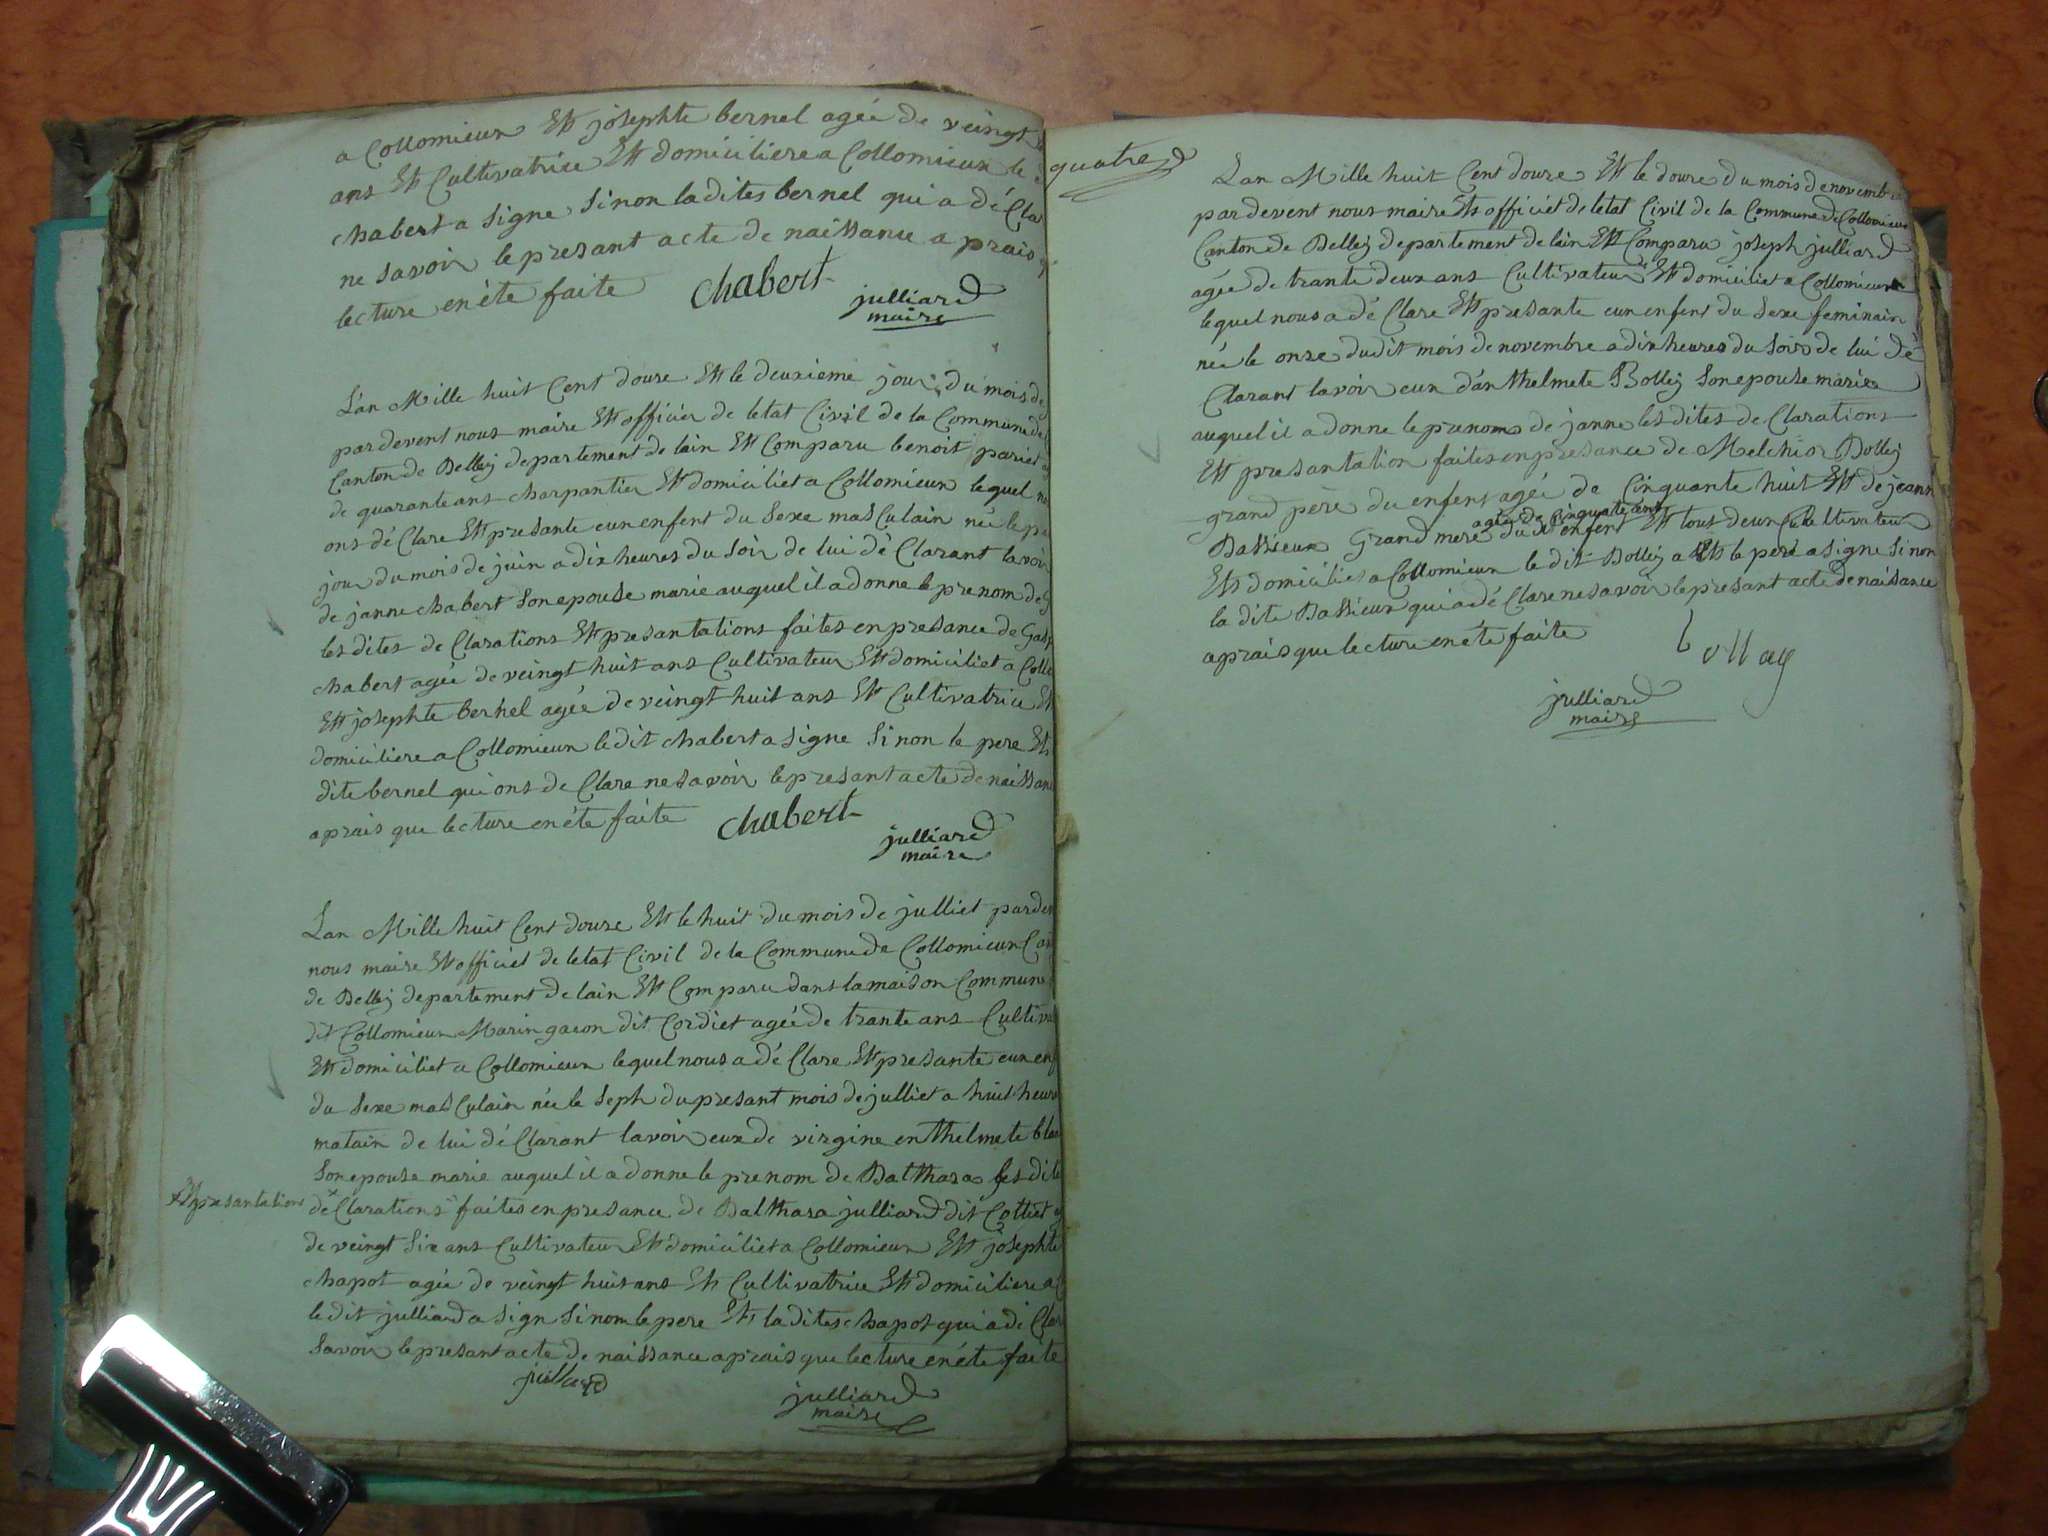 a Collomieux Et josephte bernel agée de veingt
ans Et Cultivatrice Et domiciliere a Collomieux le
chabert a signe Sinon la dites bernel qui a dé Clar
ne savoir le presant acte de naissance a prais
lecture en été faite
chabert
julliard
maire
L'an Mille huit Cent douze Et le deuxieme jour du mois de
par devent nous maire Et officier de letat Civil de la Commune de
Canton de Belley departement de lain Et Comparu benoit pariet
de quarante ans charpantier Et domiciliet a Collomieux le quel n
ons dé Clare Et presante eun enfent du Sexe mas Culain née le p
jour du mois de juin a dix heures du Soir de lui dé Clarant lavoir
de janne chabert Son epouse marie auquel il a donne le prenom de
les dites de Clarations Et presantations faites en presance de Gasp
chabert agée de veingt huit ans Cultivateur Et domiciliet a Collo
Et josephte bernel agée de veingt huit ans Et Cultivatrice Et
domiciliere a Collomieux le dit chabert a signe Sinon le pere Et
dite bernel qui ons de Clare ne savoir le presant acte de naissan
a prais que lecture en été faite
chabert
julliard
maire
Lan Mille huit Cent douze Et le huit du mois de julliet par deve
nous maire Et officiet de letat Civil de la Commune de Collomieux Can
de Belley departement de lain Et Comparu dans la maison Commune
dit Collomieux Marin gacon dit Cordiet agée de trante ans Cultivat
Et domiciliet a Collomieux lequel nous a dé Clare Et presante eun enf
du Sexe mas Culain née le Seph du presant mois de julliet a huit heure
matain de lui dé Clarant lavoir eux de virgine enthelmete bla
Son epouse marie auquel il a donne le prenom de Balthaza les dite
Et presantations
de Clarations faites en presance de Balthaza julliard dit Cottiet
de veingt Six ans Cultivateur Et domiciliet a Collomieux Et josephte
chapot agée de veingt huit ans Et Cultivatrice Et domiciliere a
le dit julliard a sign Sinom le pere Et la dites chapot qui a dé Clar
Savoir le presant acte de naissance aprais que lecture en été faite
julliard
julliard
maire
quatre
Lan Mille huit Cent douze Et le douze du mois de novembre
par devent nous maire Et officiet de letat Civil de la Commune de Collomieux
Canton de Belley departement de lain Et Comparu joseph julliard
agée de trante deux ans Cultivateur Et domiciliet a Collomieux
lequel nous a dé Clare Et presante eun enfent du Sexe feminain
née le onze du dit mois de novembre a dix heures du Soir de lui dé
Clarant lavoir eux d'anthelmete Bolley Son epouse marie
auquel il a donne le prenom de janne les dites de Clarations
Et presantation faites en presance de Melchior Bolley
grand père du enfent agée de Cinquante huit Et de jeann
agée de Cinquate ans
Dassieux Grand mere du enfent Et tous deux Cultivateur
Et domicilies a Collomieux le dit Bolley a Et le pere a signe Sinon
la dite Dassieux qui a dé Clare ne savoir le presant acte de naissance
aprais que lecture en été faite
bollay
julliard
maire